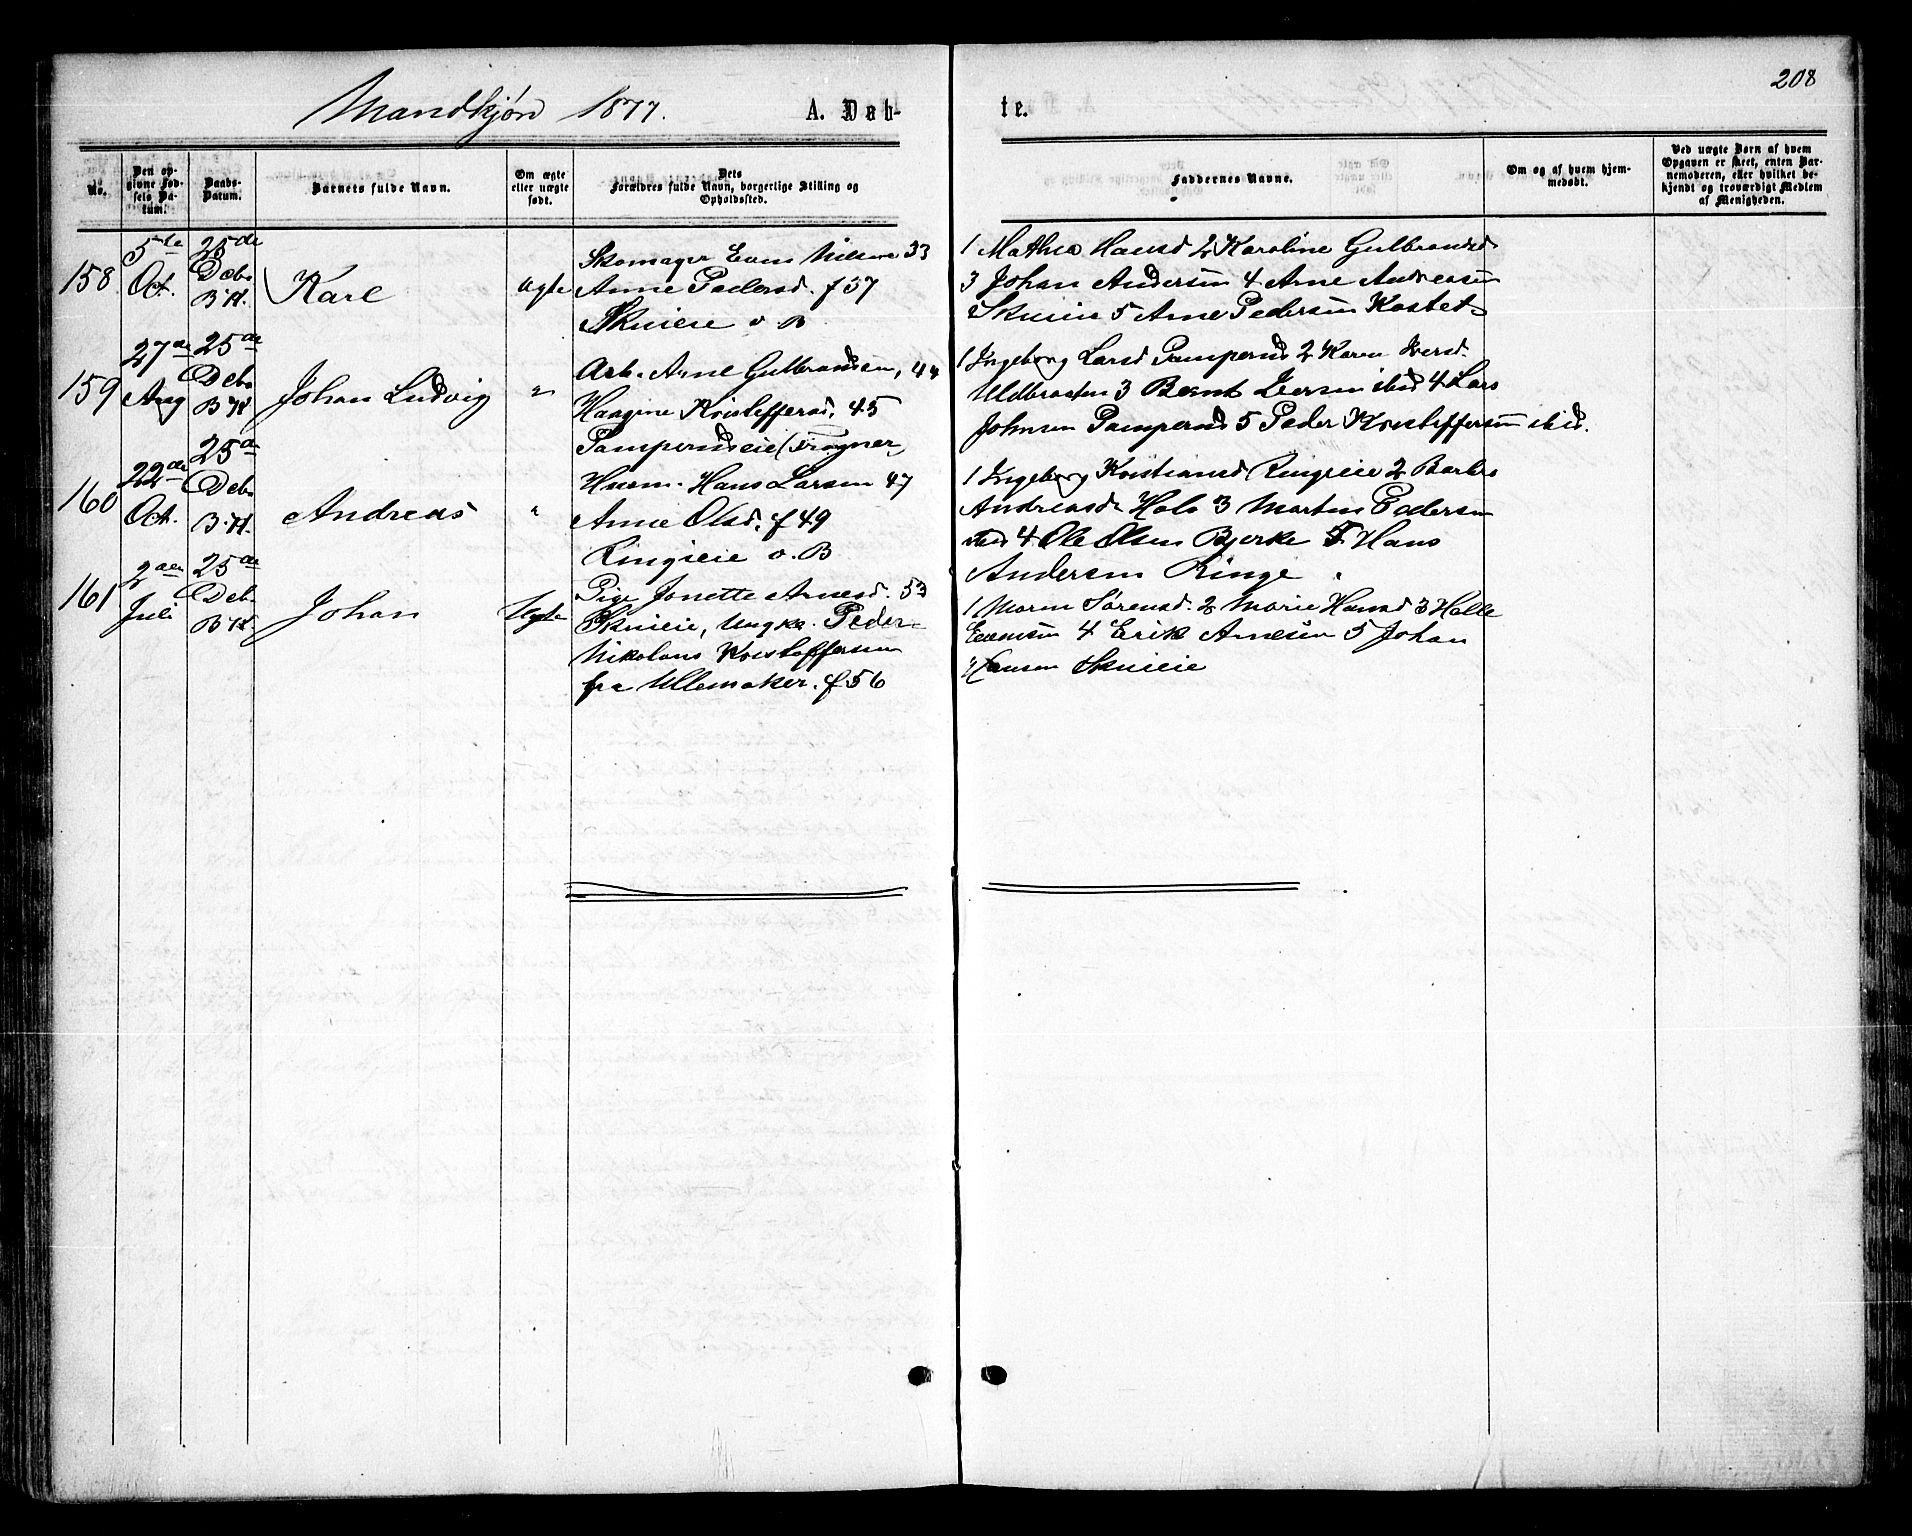 208
Mandkjøn 1877.
A. Døb-
te.
No.
Den op-
givne Fød-
sels Da-
tum.
Daabs-
Datum.
Barnets fulde Navn.
Om ægte
eller uægte
født.
Dets
Forældres fulde Navn, borgerlige Stilling og
Opholdssted.
Faddernes Navne.
Om og af hvem hjem-
medøbt.
Ved uægte Børn af hvem
Opgaven er skeet, enten Bar-
nemoderen, eller hvilket be-
kjendt og troværdigt Medlem
af Menigheden.
158
5te
Oct.
25de
Debr
B.K.
Karl
ægte
Skomager Even Nilsen 33
Anne Pedersd. f 37
Skuieie o B
1 Mathea Hansd 2 Karoline Gulbrandsd
3 Johan Andersen 4 Arne Andreasen
Skuien 5 Arne Pedersen Kostet
159
27de
Aug
25de
Debr
B K
Johan Ludvig
"
Arb. Arne Gulbrandsen, 44
Haagine Kristoffersd. 45
Tamperudeie (Sogner)
1 Ingeborg Larsd Tamperud 2 Karen Iversd.
3 Bernt Iversen ibid 4 Lars
Johnsen Tamperud 5 Peder Kristoffersen ibid.
160
22de
Oct.
25de
Debr
B.K.
Andreas
"
Husm. Hans Larsen 47
Anne Olsd. f 49
Ringieie o. B
1 Ingeborg Kristiansd Ringieie 2 Barbro
Andreasd Holo 3 Morten Pedersen
ibid 4 Ole Olsen Bjerke 5 Hans
Andersen Ringe.
161
2den
Juli
25de
Deb.
B K.
Johan
Uægte
Pige Jonette Arnesd. 53
Skuieie, Ungk. Peder
Nikolaus Kristoffersen
fra Ullemaker. f 56
1 Maren Sørensd. 2 Marie Hansd 3 Helle
Evensen 4 Erik Arnesen 5 Johan
Hansen Skuieie